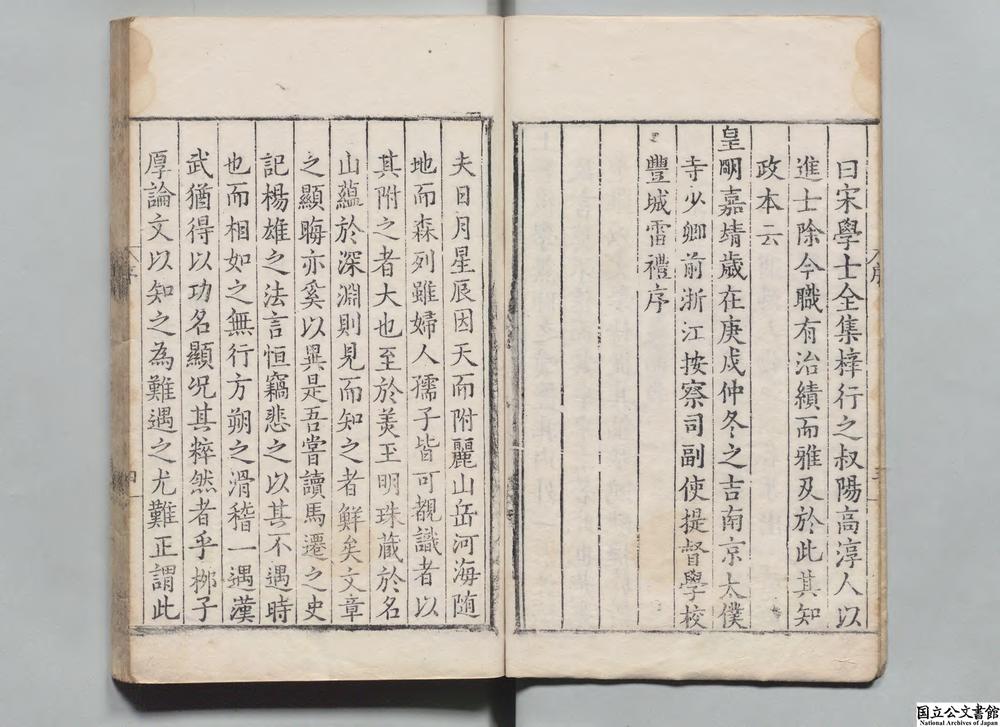 曰宋學士全集梓行之叔陽高淳人以
進士除今職有治績而雅及於此其知
政本云
皇明嘉靖歲在庚戌仲冬之吉南京太僕
寺少卿前浙江按察司副使提督學校
豐城雷禮序
夫日月星辰因天而附麗山岳河海随
地而森列雖婦人孺子皆可覩識者以
其附之者大也至於羙玉明珠蔵於名
山蘊於深淵則見而知之者鮮矣文章
之顯晦亦奚以異是吾嘗讀馬遷之史
記楊雄之法言恒竊悲之以其不遇時
也而相如之無行方朔之滑稽一遇漢
武猶得以功名顯况其粹然者乎栁子
厚論文以知之為難遇之尤難正謂此
序
四
国立公文書館
National Archives of Japan